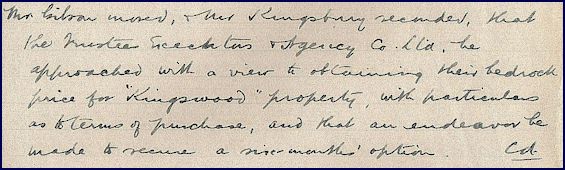 Mr Gibson moved, & Mr Kingsbury seconded, that
the Trustees Executors & Agency Co. Ltd. be
approached with a view to obtaining their bedrock
price for "Kingswood" property, with particulars
as to terms of purchase, and that an endeavor be
made to secure a six-months' option. Cd.